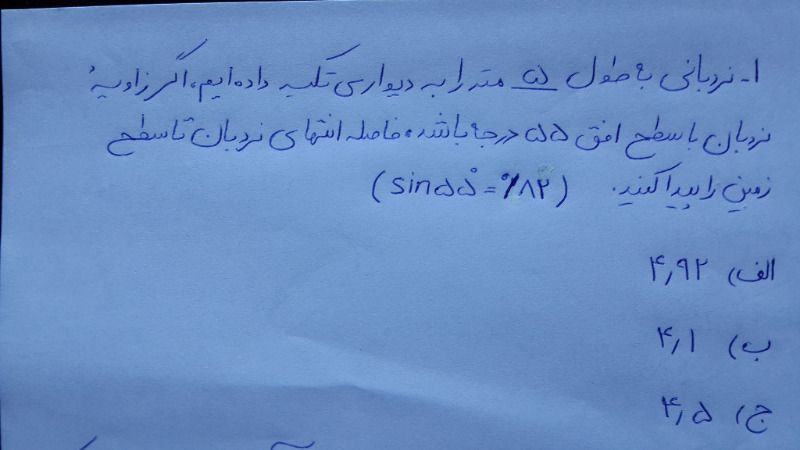 ۱- نردبانی به طول ۵ متر را به دیواری تکیه داده‌ایم، اگر زاویهٔ
نردبان با سطح افق ۵۵ درجه باشد، فاصله انتهای نردبان تا سطح
زمین را پیدا کنید. (sin۵۵°=۰/۸۲)
الف) ۴٫۹۲
ب) ۴٫۱
ج) ۴٫۵